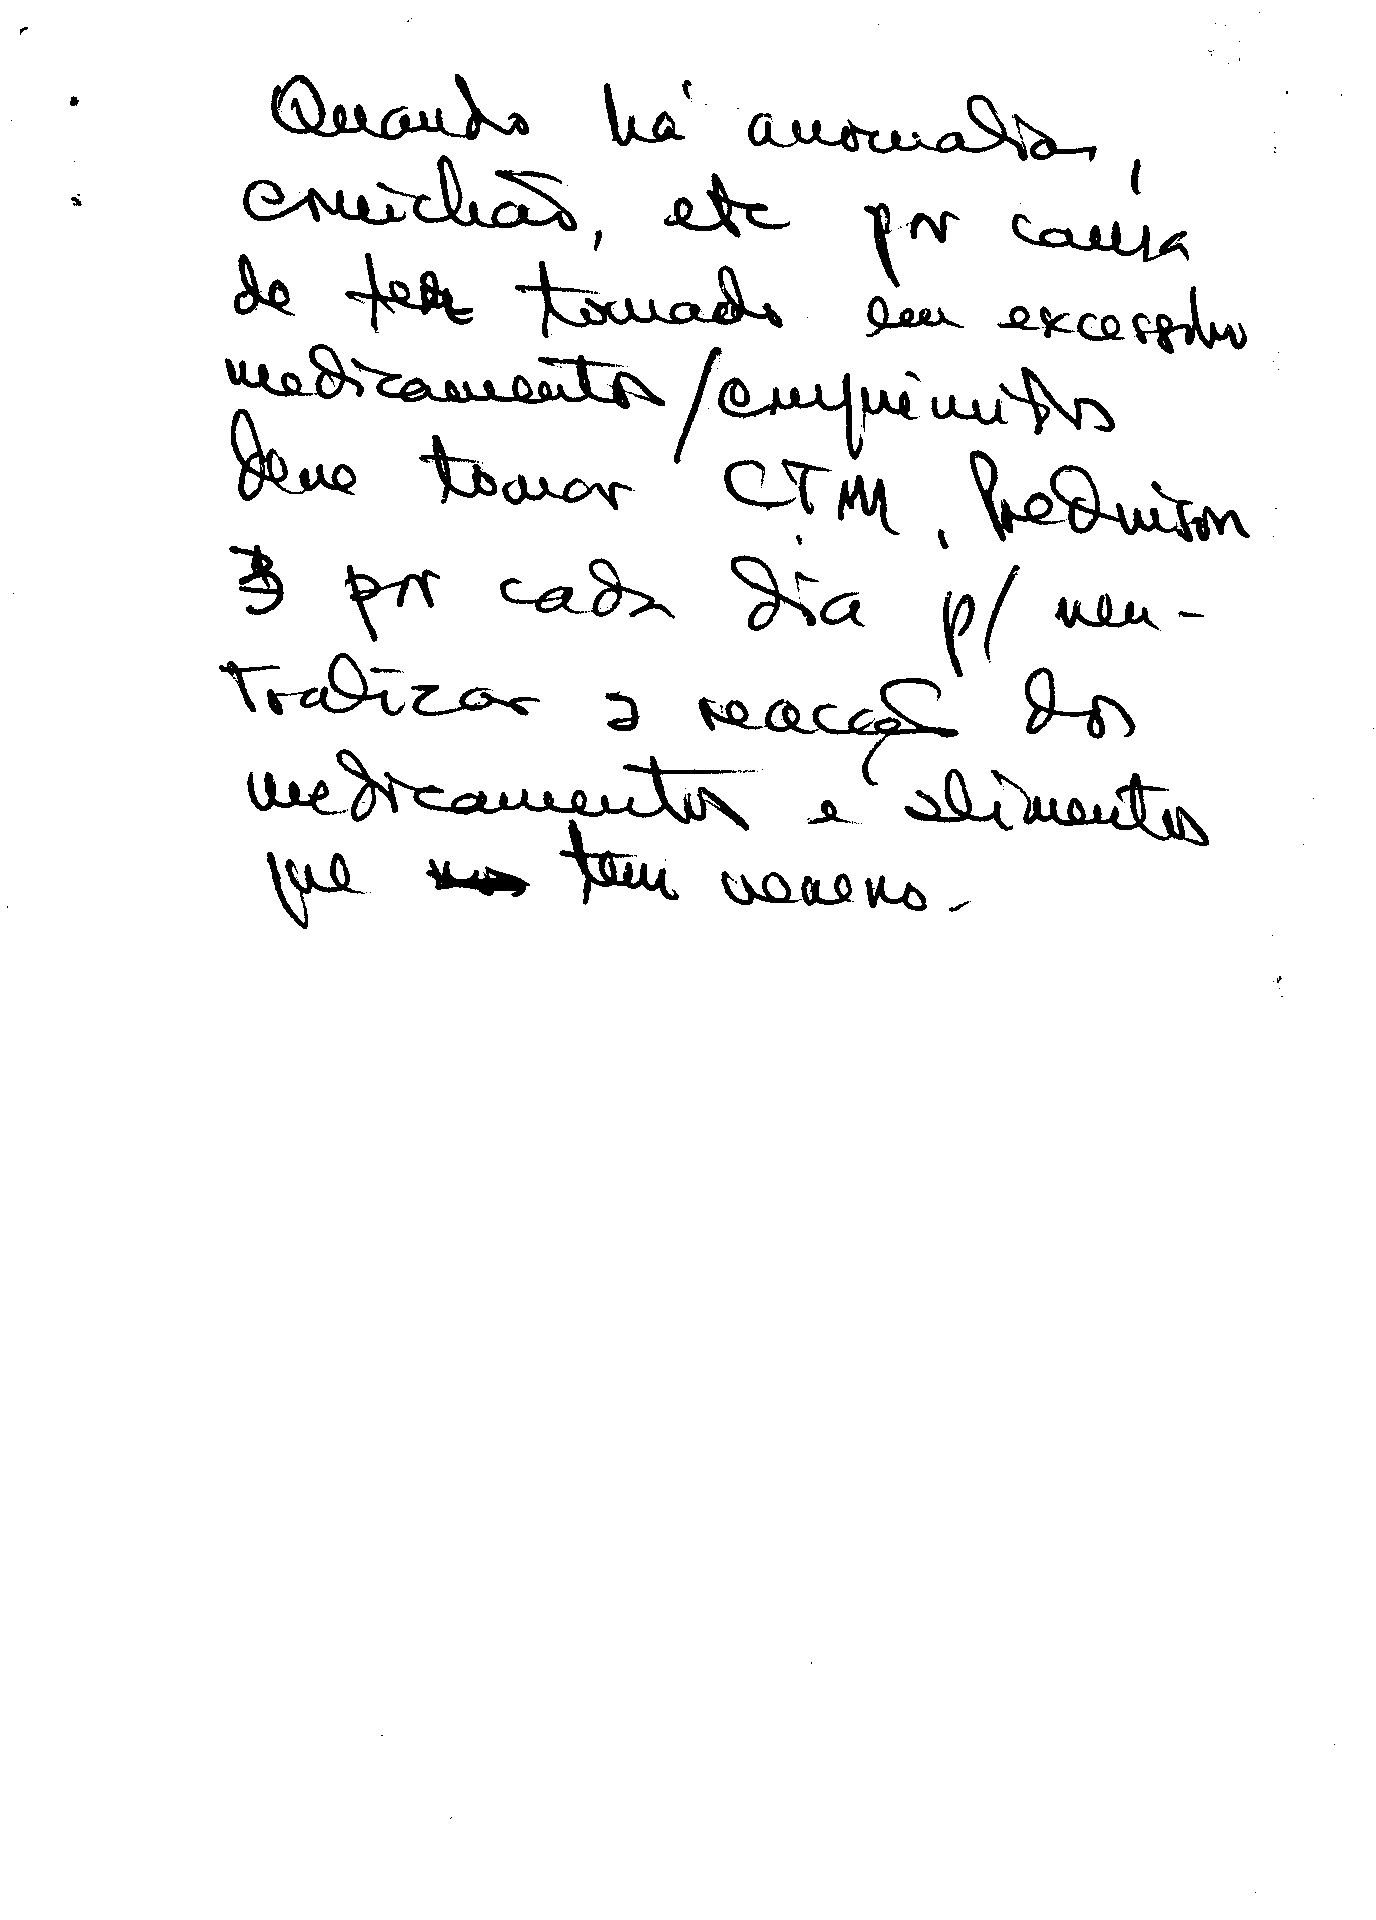 Quando há anomalia,
comichão, etc por causa
de ter tomado em excesso
medicamentos/comprimidos
deve tomar CTM, Prednison
3 por cada dia p/ neu-
tralizar a reacção dos
medicamentos e alimentos
que tem veneno.